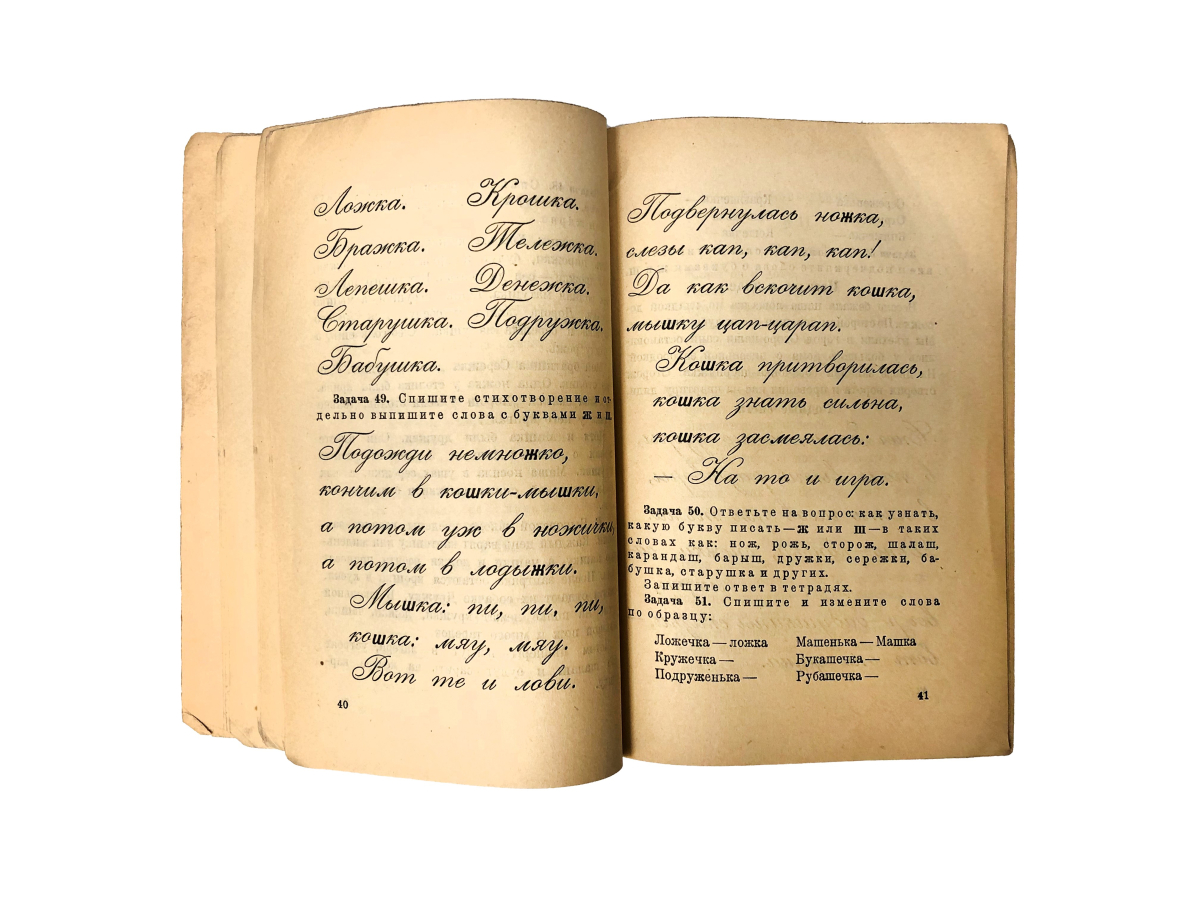 Ложка. Крошка.
Бражка. Тележка.
Лепешка. Денежка.
Старушка. Подружка.
Бабушка.
Задача 49. Спишите стихотворение и от-
дельно выпишите слова с буквами ж и ш.
Подожди немножко,
кончим в кошки-мышки,
а потом уж в ножички,
а потом в лодыжки.
Мышка: пи, пи, пи,
кошка: мяу, мяу.
Вот те и лови.
40
Подвернулась ножка,
слезы кап, кап, кап!
Да как вскочит кошка,
мышку цап-царап.
Кошка притворилась,
кошка знать сильна,
кошка засмеялась:
— На то и игра.
Задача 50. Ответьте на вопрос: как узнать,
какую букву писать — ж или ш — в таких
словах как: нож, рожь, сторож, шалаш,
карандаш, барыш, дружки, сережки, ба-
бушка, старушка и других.
Запишите ответ в тетрадях.
Задача 51. Спишите и измените слова
по образцу:
Ложечка — ложка Машенька — Машка
Кружечка — Букашечка —
Подруженька — Рубашечка —
41